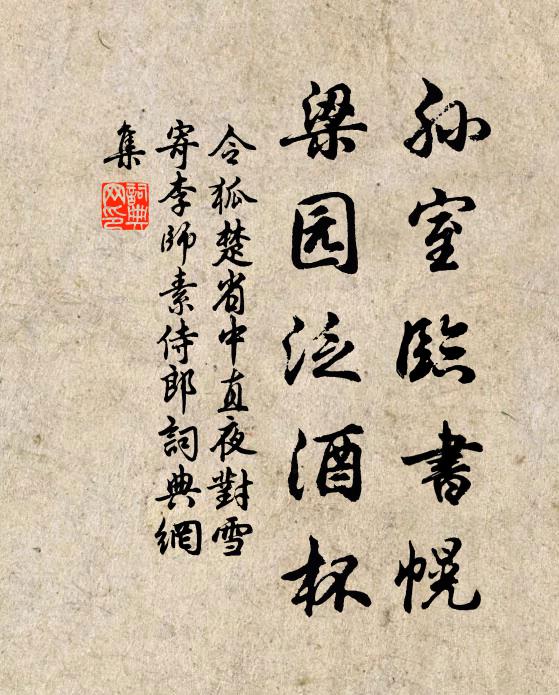 孙室臨書幌
梁园泛酒杯
令狐楚省中直夜對雪
寄李師素侍郎詞典網
集
詞典网印